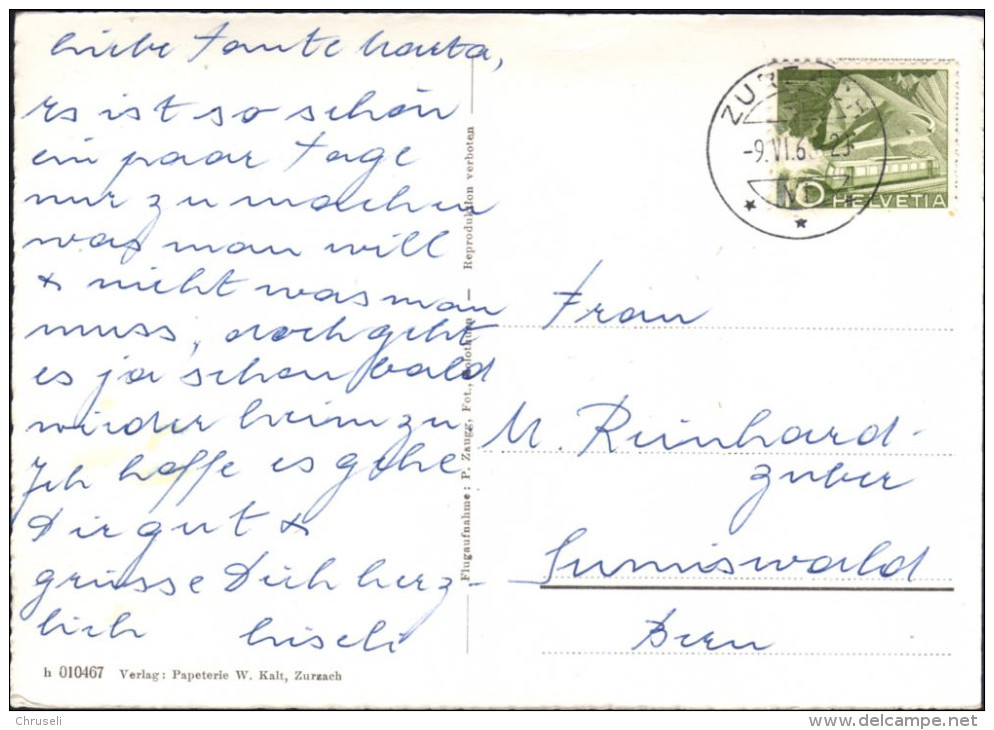 liebe Tante Marta,
es ist so schön
ein paar Tage
nur zu machen
was man will
& nicht was man
muss, doch geht
es ja schon bald
wieder heimzu
Ich hoffe es gehe
Dir gut &
grüsse Dich herz-
lich Liseli
h 010467 Verlag: Papeterie W. Kalt, Zurzach
Flugaufnahme: P. Zaugg, Fot., Solothurn — Reproduktion verboten
ZURZACH
-9.VI.6 -23
10 HELVETIA
Frau
M. Reinhard-
Zuber
Sumiswald
Bern
Chruseli
delcampe.net